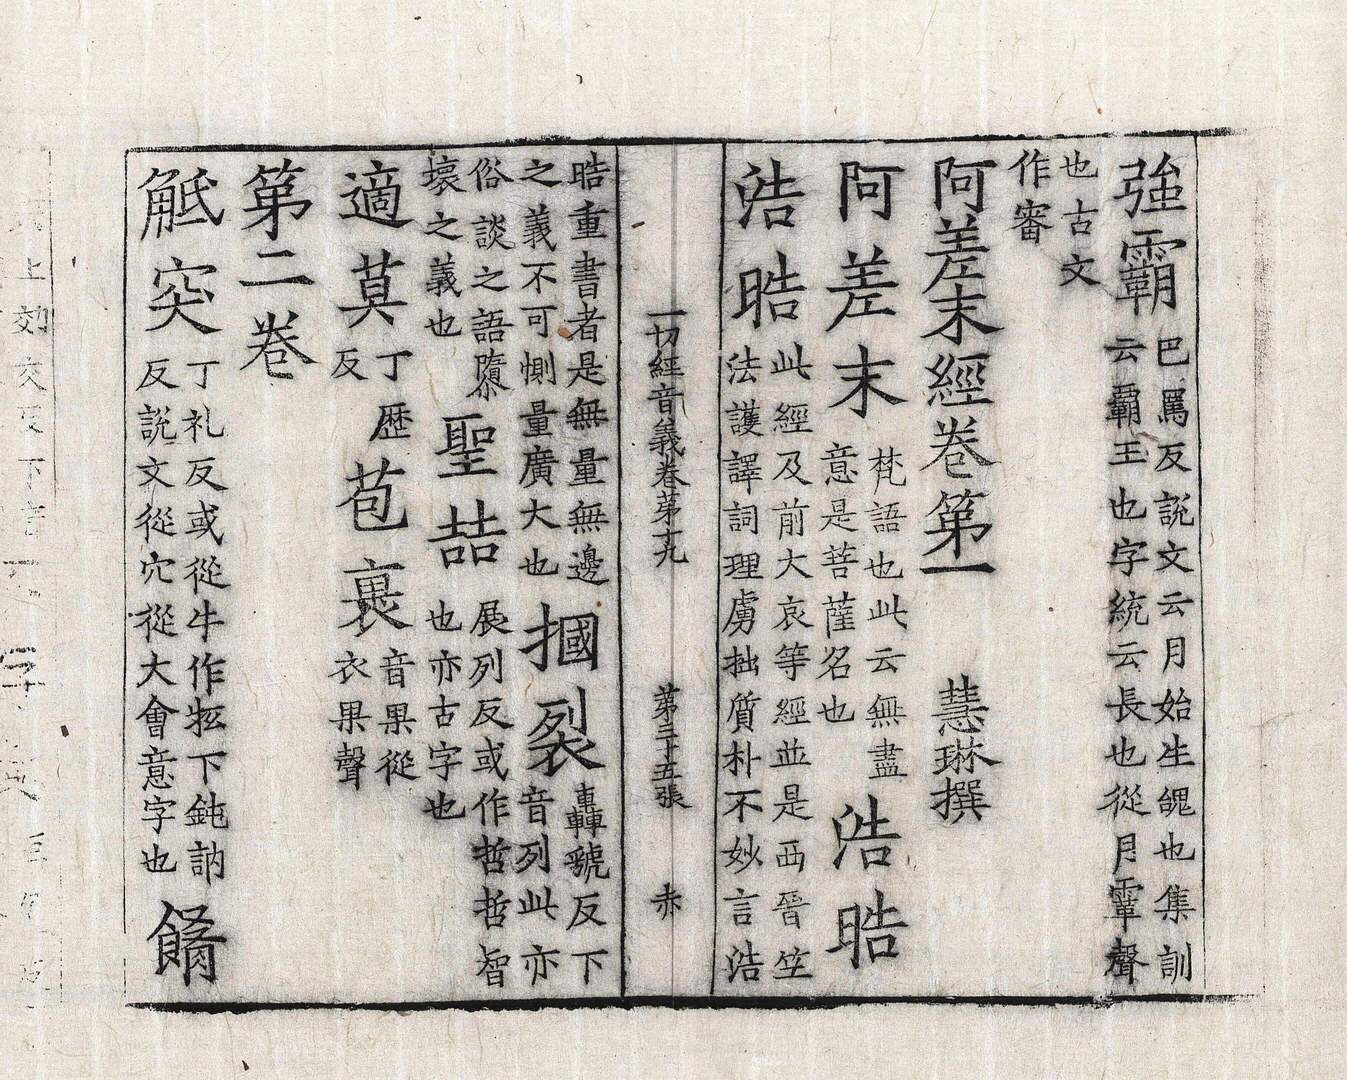 強霸巴罵反說文云月始生䰟也集訓
云霸王也字統云長也從月䨣聲
也古文
作審
阿差末經卷第一 慧琳撰
阿差末梵語也此云無盡
意是菩薩名也浩晧
浩晧此經及前大哀等經並是西晉竺
法護譯詞理虜拙質朴不妙言浩
一切經音義卷第十九 第三十五張 赤
晧重書者是無量無邊
之義不可惻量廣大也摑裂轟虢反下
音列此亦
俗談之語隳
壞之義也聖喆展列反或作哲哲智
也亦古字也
適莫丁歷
反苞裹音果從
衣果聲
第二卷
觝突丁礼反或從牛作牴下鈍訥
反說文從穴從大會意字也餚